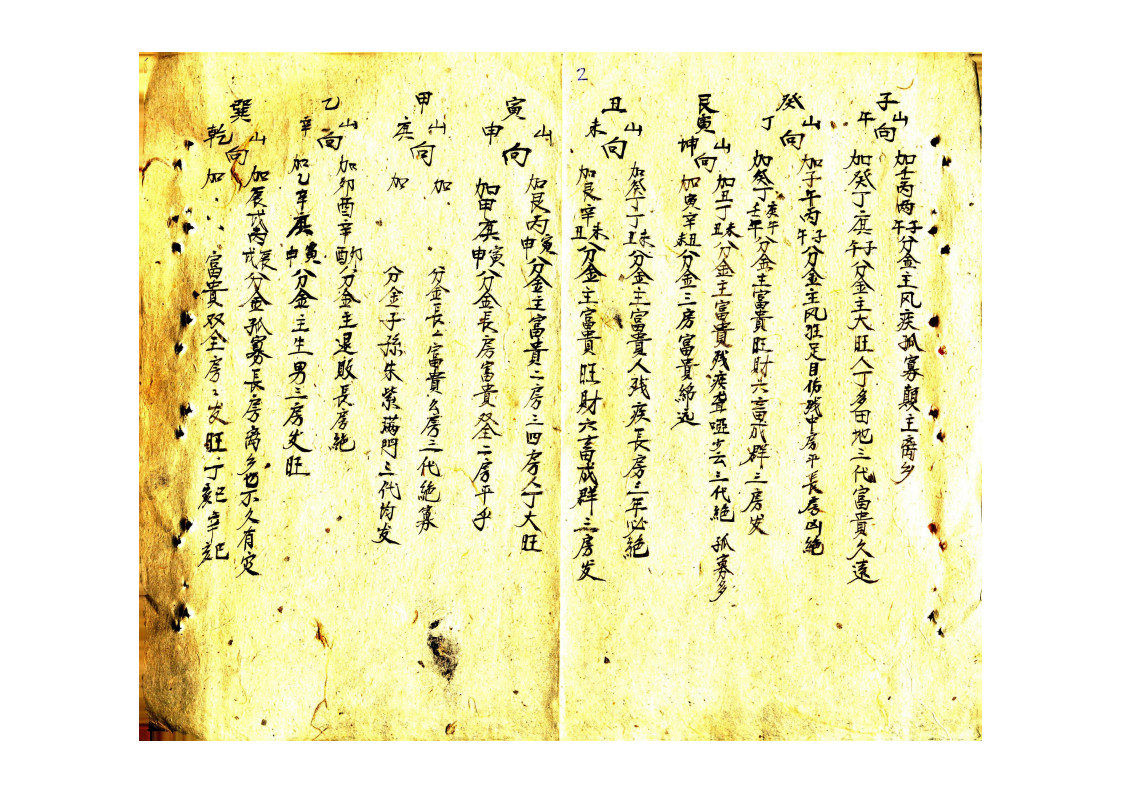 2
子山午向
加壬丙丙子午分金主风疾孤寡顛主离乡
加癸丁庚子午分金主大旺人丁多田地三代富貴久遠
癸山丁向
加子午丙子午分金主风 足目 残中房平長房凶絶
加癸丁庚子壬午分金主富貴旺財六畜成群三房发
艮寅山坤向
加丑丁丑未分金主富貴残疾聋哑 云三代絶孤寡多
加寅辛丑未分金三房富貴綿远
丑山未向
加癸丁丁丑未分金主富貴人残疾長房三年必絶
加艮辛丑未分金主富貴旺財六畜成群三房发
寅山申向
加艮丙寅申分金主富貴二房三四房人丁大旺
加甲庚寅申分金長房富貴双全二房平乎
甲山庚向
加 分金長二富貴么房三代絶寡
加 分金子孫朱紫滿門三代均发
乙山辛向
加卯酉辛卯酉分金主退敗長房絶
加乙辛庚寅申分金主生男三房发旺
巽山乾向
加辰戌丙辰戌分金孤寡長房离乡也不久有定
加 富貴双全房々发旺丁 己辛 己